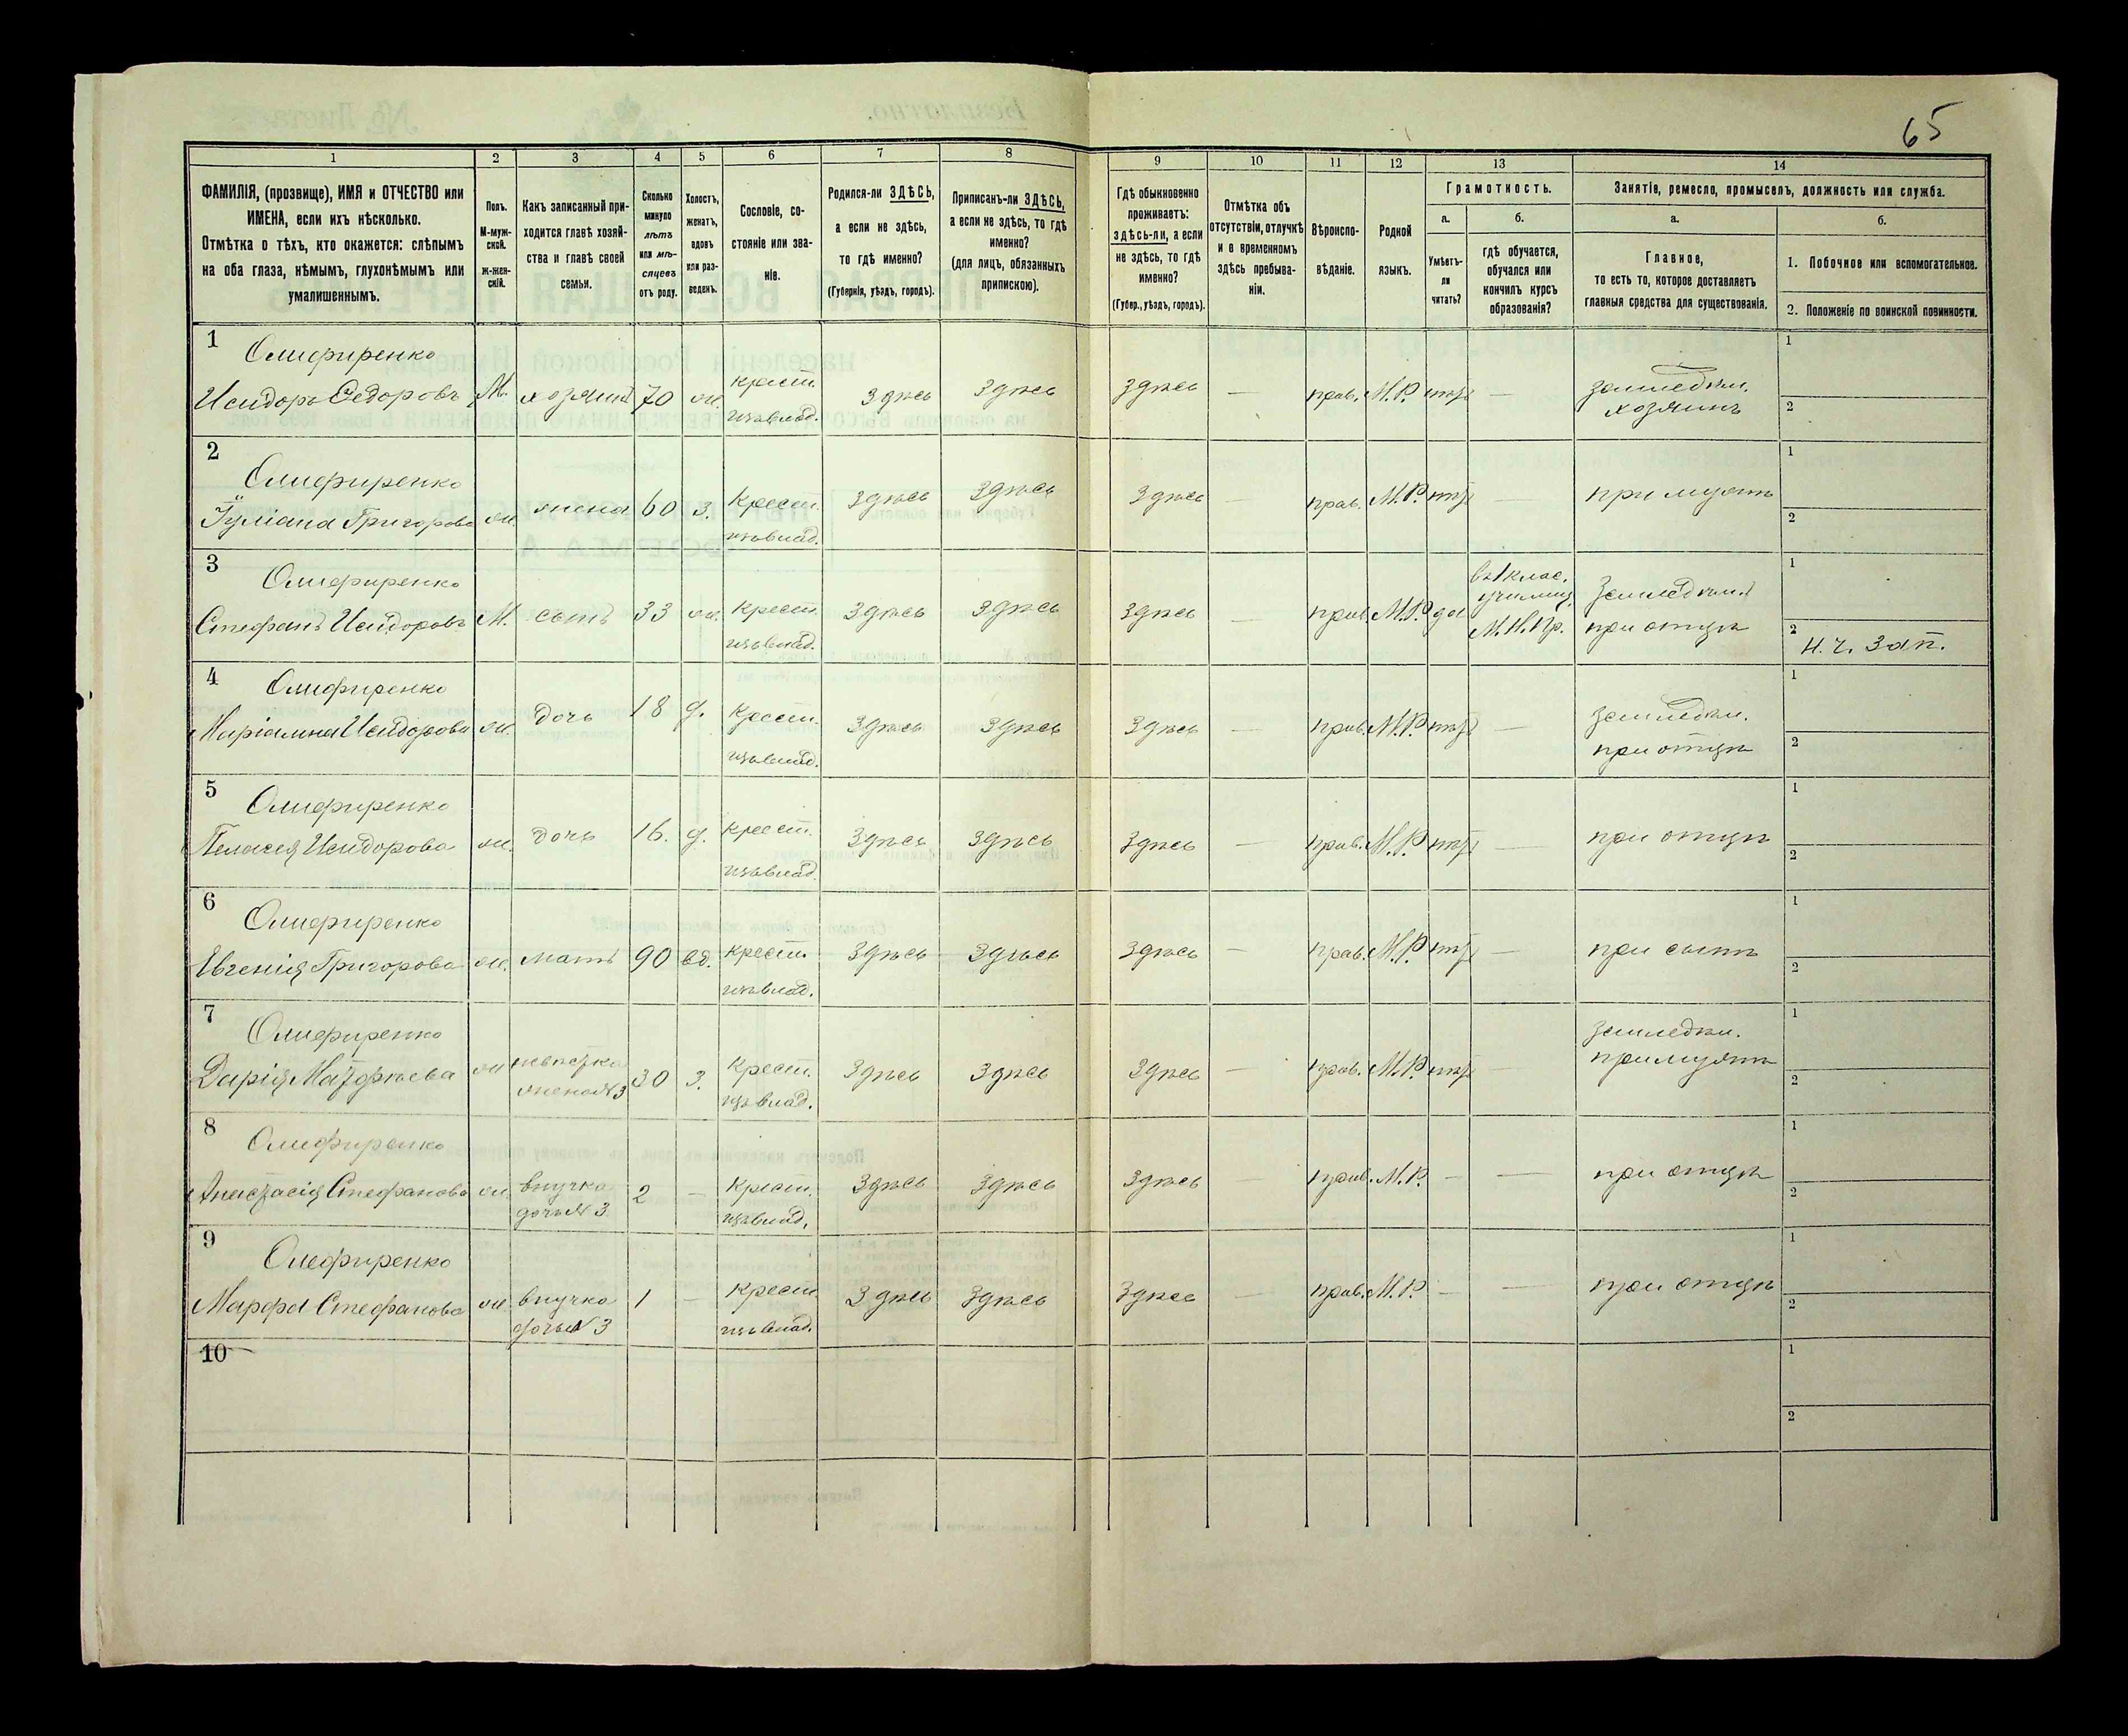 65
1 2 3 4 5 6 7 8 9 10 11 12 13 14
ФАМИЛІЯ, (прозвище), ИМЯ и ОТЧЕСТВО или
ИМЕНА, если ихъ нѣсколько.
Отмѣтка о тѣхъ, кто окажется: слѣпымъ
на оба глаза, нѣмымъ, глухонѣмымъ или
умалишеннымъ.
Полъ.
М-муж-
ской.
ж-жен-
скій.
Какъ записанный при-
ходится главѣ хозяй-
ства и главѣ своей
семьи.
Сколько
минуло
лѣтъ
или мѣ-
сяцевъ
отъ роду.
Холостъ,
женатъ,
вдовъ
или раз-
веденъ.
Сословіе, со-
стояніе или зва-
ніе.
Родился-ли ЗДѢСЬ,
а если не здѣсь,
то гдѣ именно?
(Губернія, уѣздъ, городъ).
Приписанъ-ли ЗДѢСЬ,
а если не здѣсь, то гдѣ
именно?
(для лицъ, обязанныхъ
припискою).
Гдѣ обыкновенно
проживаетъ:
здѣсь-ли, а если
не здѣсь, то гдѣ
именно?
(Губер., уѣздъ, городъ).
Отмѣтка объ
отсутствіи, отлучкѣ
и о временномъ
здѣсь пребыва-
ніи.
Вѣроиспо-
вѣданіе.
Родной
языкъ.
Грамотность.
а.
Умѣетъ-
ли
читать?
б.
гдѣ обучается,
обучался или
кончилъ курсъ
образованія?
Занятіе, ремесло, промыселъ, должность или служба.
а.
Главное,
то есть то, которое доставляетъ
главныя средства для существованія.
б.
1. Побочное или вспомогательное.
2. Положеніе по воинской повинности.
1 Олифиренко
Исидоръ Ѳедоровъ М. хозяинъ 70 ж. крест. здѣсь здѣсь здѣсь — прав. М.Р. нѣт — земледѣл. 1
изъ влад. хозяинъ 2
2 Олифиренко
Іуліана Григорова ж. жена 60 з. крест. здѣсь здѣсь здѣсь — прав. М.Р. нѣт — при мужѣ 1
изъ влад. 2
3 Олифиренко въ 1 клас. 1
училищ. земледѣл.
Стефанъ Исидоровъ М. сынъ 33 ж. крест. здѣсь здѣсь здѣсь — прав. М.Р. да М.Н.Пр. при отцѣ 2
изъ влад. Н. ч. Зап.
4 Олифиренко
Маріамна Исидорова ж. дочь 18 д. крест. здѣсь здѣсь здѣсь — прав. М.Р. нѣт — земледѣл. 1
изъ влад. при отцѣ 2
5 Олифиренко
Пелагея Исидорова ж. дочь 16. д. крест. здѣсь здѣсь здѣсь — прав. М.Р. нѣт — при отцѣ 1
изъ влад. 2
6 Олифиренко
Евгенія Григорова ж. мать 90 вд. крест. здѣсь здѣсь здѣсь — прав. М.Р. нѣт — при сынѣ 1
изъ влад. 2
7 Олифиренко земледѣл. 1
Дарія Матфѣева ж невѣстка 30 з. крест. здѣсь здѣсь здѣсь — прав. М.Р. нѣт — при мужѣ
жена № 3 изъ влад. 2
8 Олифиренко
Анастасія Стефанова ж. внучка 2 — крест. здѣсь здѣсь здѣсь — прав. М.Р. — — при отцѣ 1
дочь № 3 изъ влад. 2
9 Олефиренко
Марфа Стефанова ж. внучка 1 — крест. здѣсь здѣсь здѣсь — прав. М.Р. — — при отцѣ 1
дочь № 3 изъ влад. 2
10 1
2